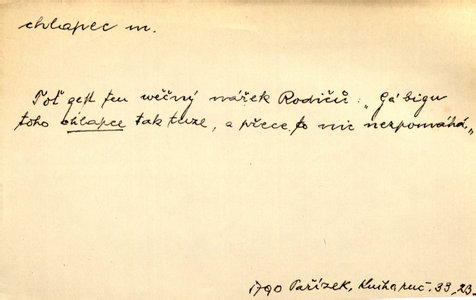 chlapec m.
Toť gest ten wěčný nářek Rodičů: „Gá bigu
toho chlapce tak tuze, a přece to nic nezpomáhá„
1790 Pařízek, Kniha ruč. 33, 23.